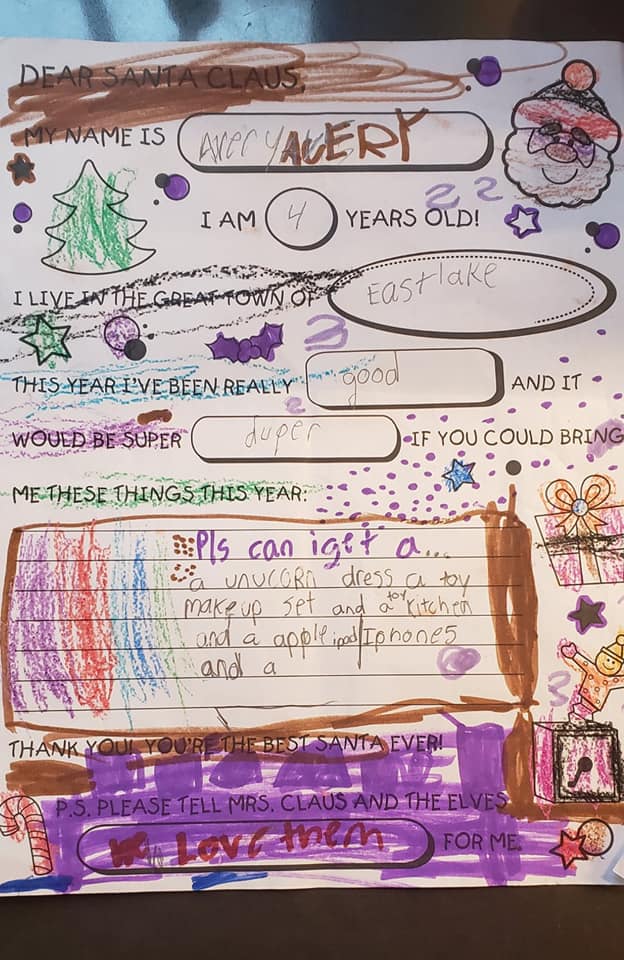 DEAR SANTA CLAUS,
MY NAME IS Avery AVERY
I AM 4 YEARS OLD!
I LIVE IN THE GREAT TOWN OF Eastlake
THIS YEAR I'VE BEEN REALLY good AND IT
WOULD BE SUPER duper IF YOU COULD BRING
ME THESE THINGS THIS YEAR:
Pls can i get a...
a unucorn dress a toy
makeup set and a toy kitchen
and a apple ipad/Iphone5
and a
THANK YOU! YOU'RE THE BEST SANTA EVER!
P.S. PLEASE TELL MRS. CLAUS AND THE ELVES
Love them FOR ME.